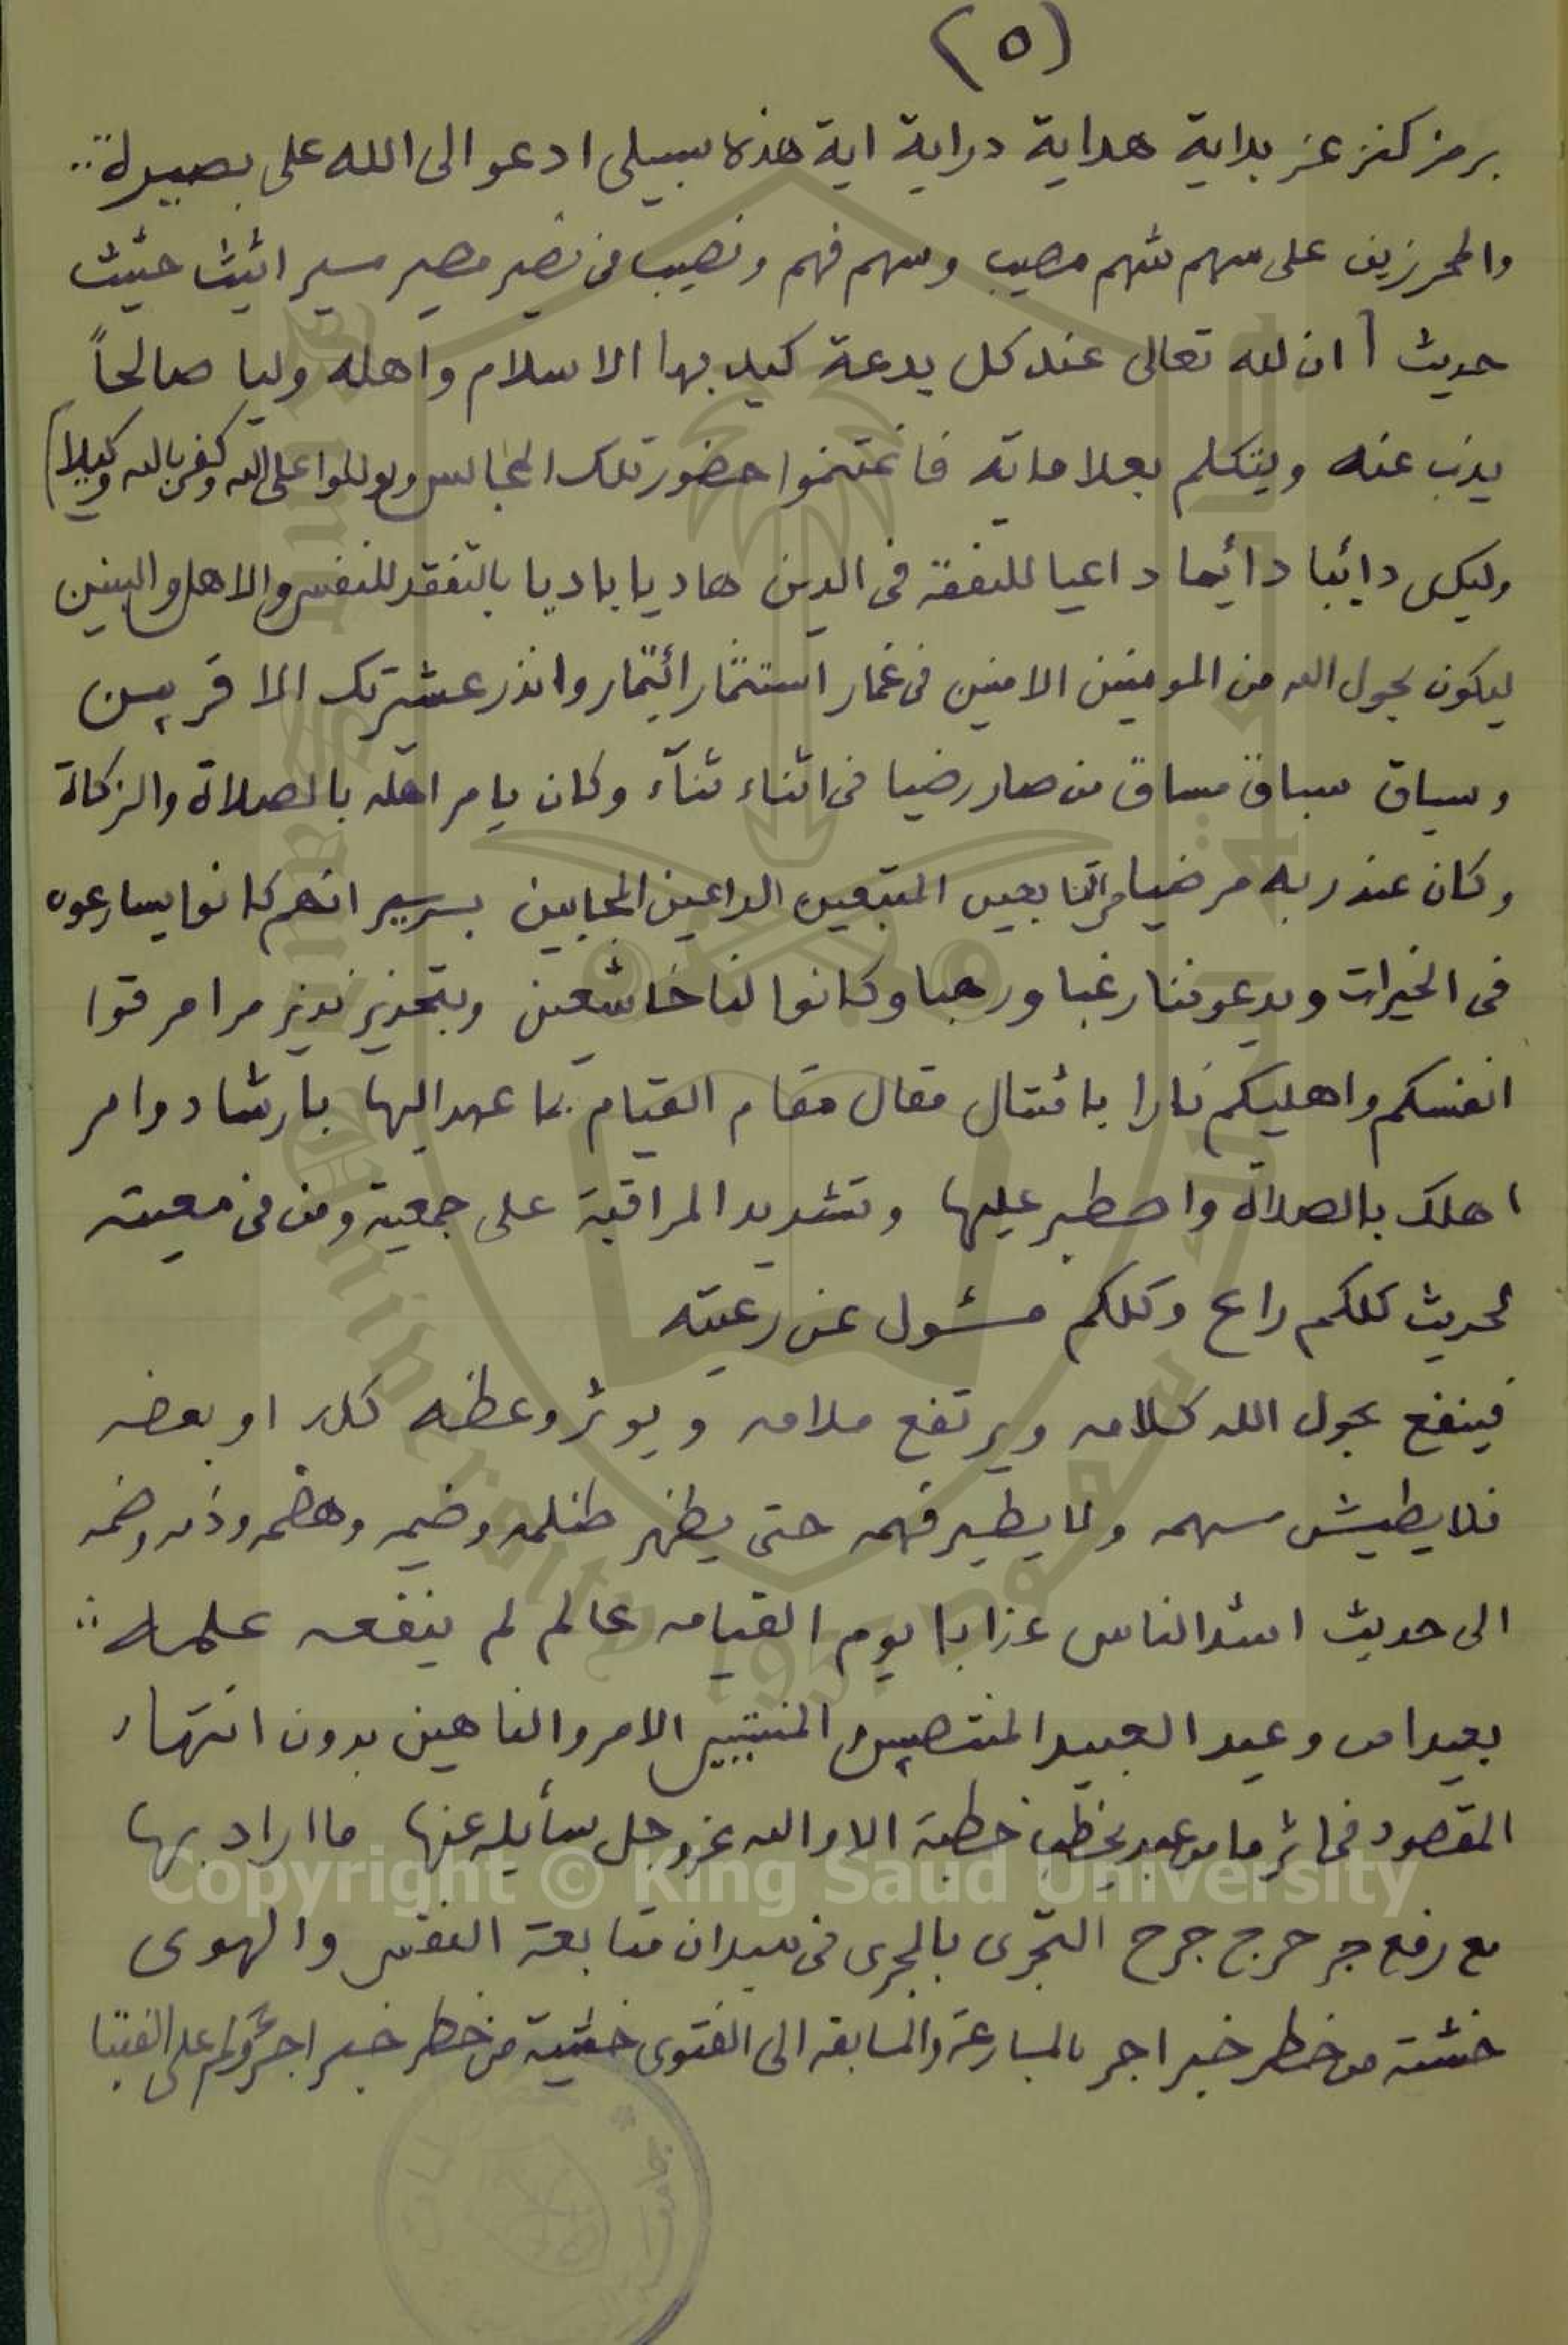 (٥)
برمز كنز عز بداية هداية دراية اية هذه سبيلى ادعو الى الله على بصيرة
والمحرزين على سهم شهم مصيب وسهم فهم ونصيب من نصير مصير مسير اثيث حثيث
حديث ان لله تعالى عند كل بدعة كيد بها الاسلام واهله وليا صالحاً
يذب عنه ويتكلم بعلاماته فاغتنموا حضور تلك المجالس وتوكلوا على الله وكفى بالله وكيلا)
وليكن دايبا دأيما داعيا للتفقة فى الدين هاديا باديا بالتفقد للنفس والاهل والبنين
ليكون بحول الله من المومنين الامنين فى غمار استثمار ائتمار وانذر عشيرتك الاقربين
وسياق سباق مساق من صار رضيا فى اثناء ثنآء وكان يامر اهله بالصلاة والزكاة
وكان عند ربه مرضيا من التابعين المتبعين الداعين المجابين بسرير انهم كانوا يسارعون
فى الخيرات ويدعوننا رغبا ورهبا وكانوا لنا خاشعين وبتحذير نذير مرامر قوا
انفسكم واهليكم نارا بامتثال مقال مقام القيام بما عهد اليها بارشاد وامر
اهلك بالصلاة واصطبر عليها وتشديد المراقبة على جمعية ومن فى معيته
لحديث كلكم راع وكلكم مسئول عن رعيته
فينفع بحول الله كلامه ويرتفع ملامه ويوثر وعظه كله او بعضه
فلا يطيش سهمه ولا يطير فهمه حتى يظهر ظلمه وضيمه وهضمه وذمه وضمه
الى حديث اشد الناس عذابا يوم القيامه عالم لم ينفعه علمه
بعيدا من وعيد العبيد المنتصبين المنتسبين الامر والناهين بدون انتهاء
المقصود فى اثر ما من عبد يخطب خطبة الا والله عز وجل سأيله عنها ما اراد بها
مع رفع جر حرج جرح التجرى بالجرى فى ميدان متابعة النفس والهوى
خشية من خطر خبر اجر بالمسارعة والمسابقه الى الفتوى خشية من خطر خبر اجرؤكم على الفتيا
Copyright © King Saud University
King Saud University
1957